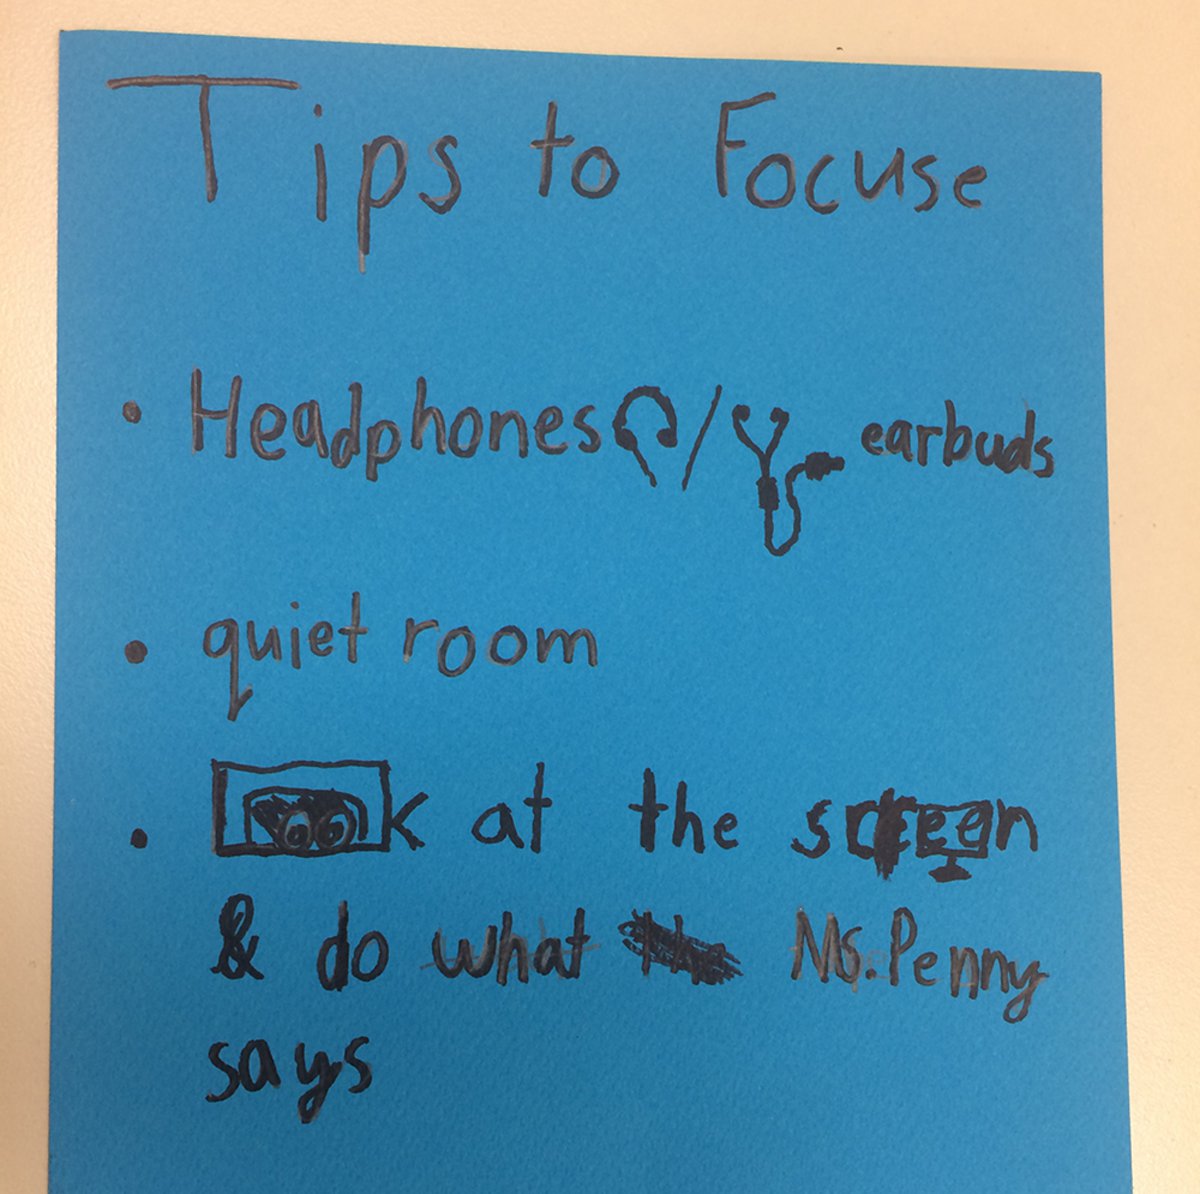 Tips to Focuse
• Headphones / earbuds
• quiet room
• Look at the screen
& do what Ms. Penny
says